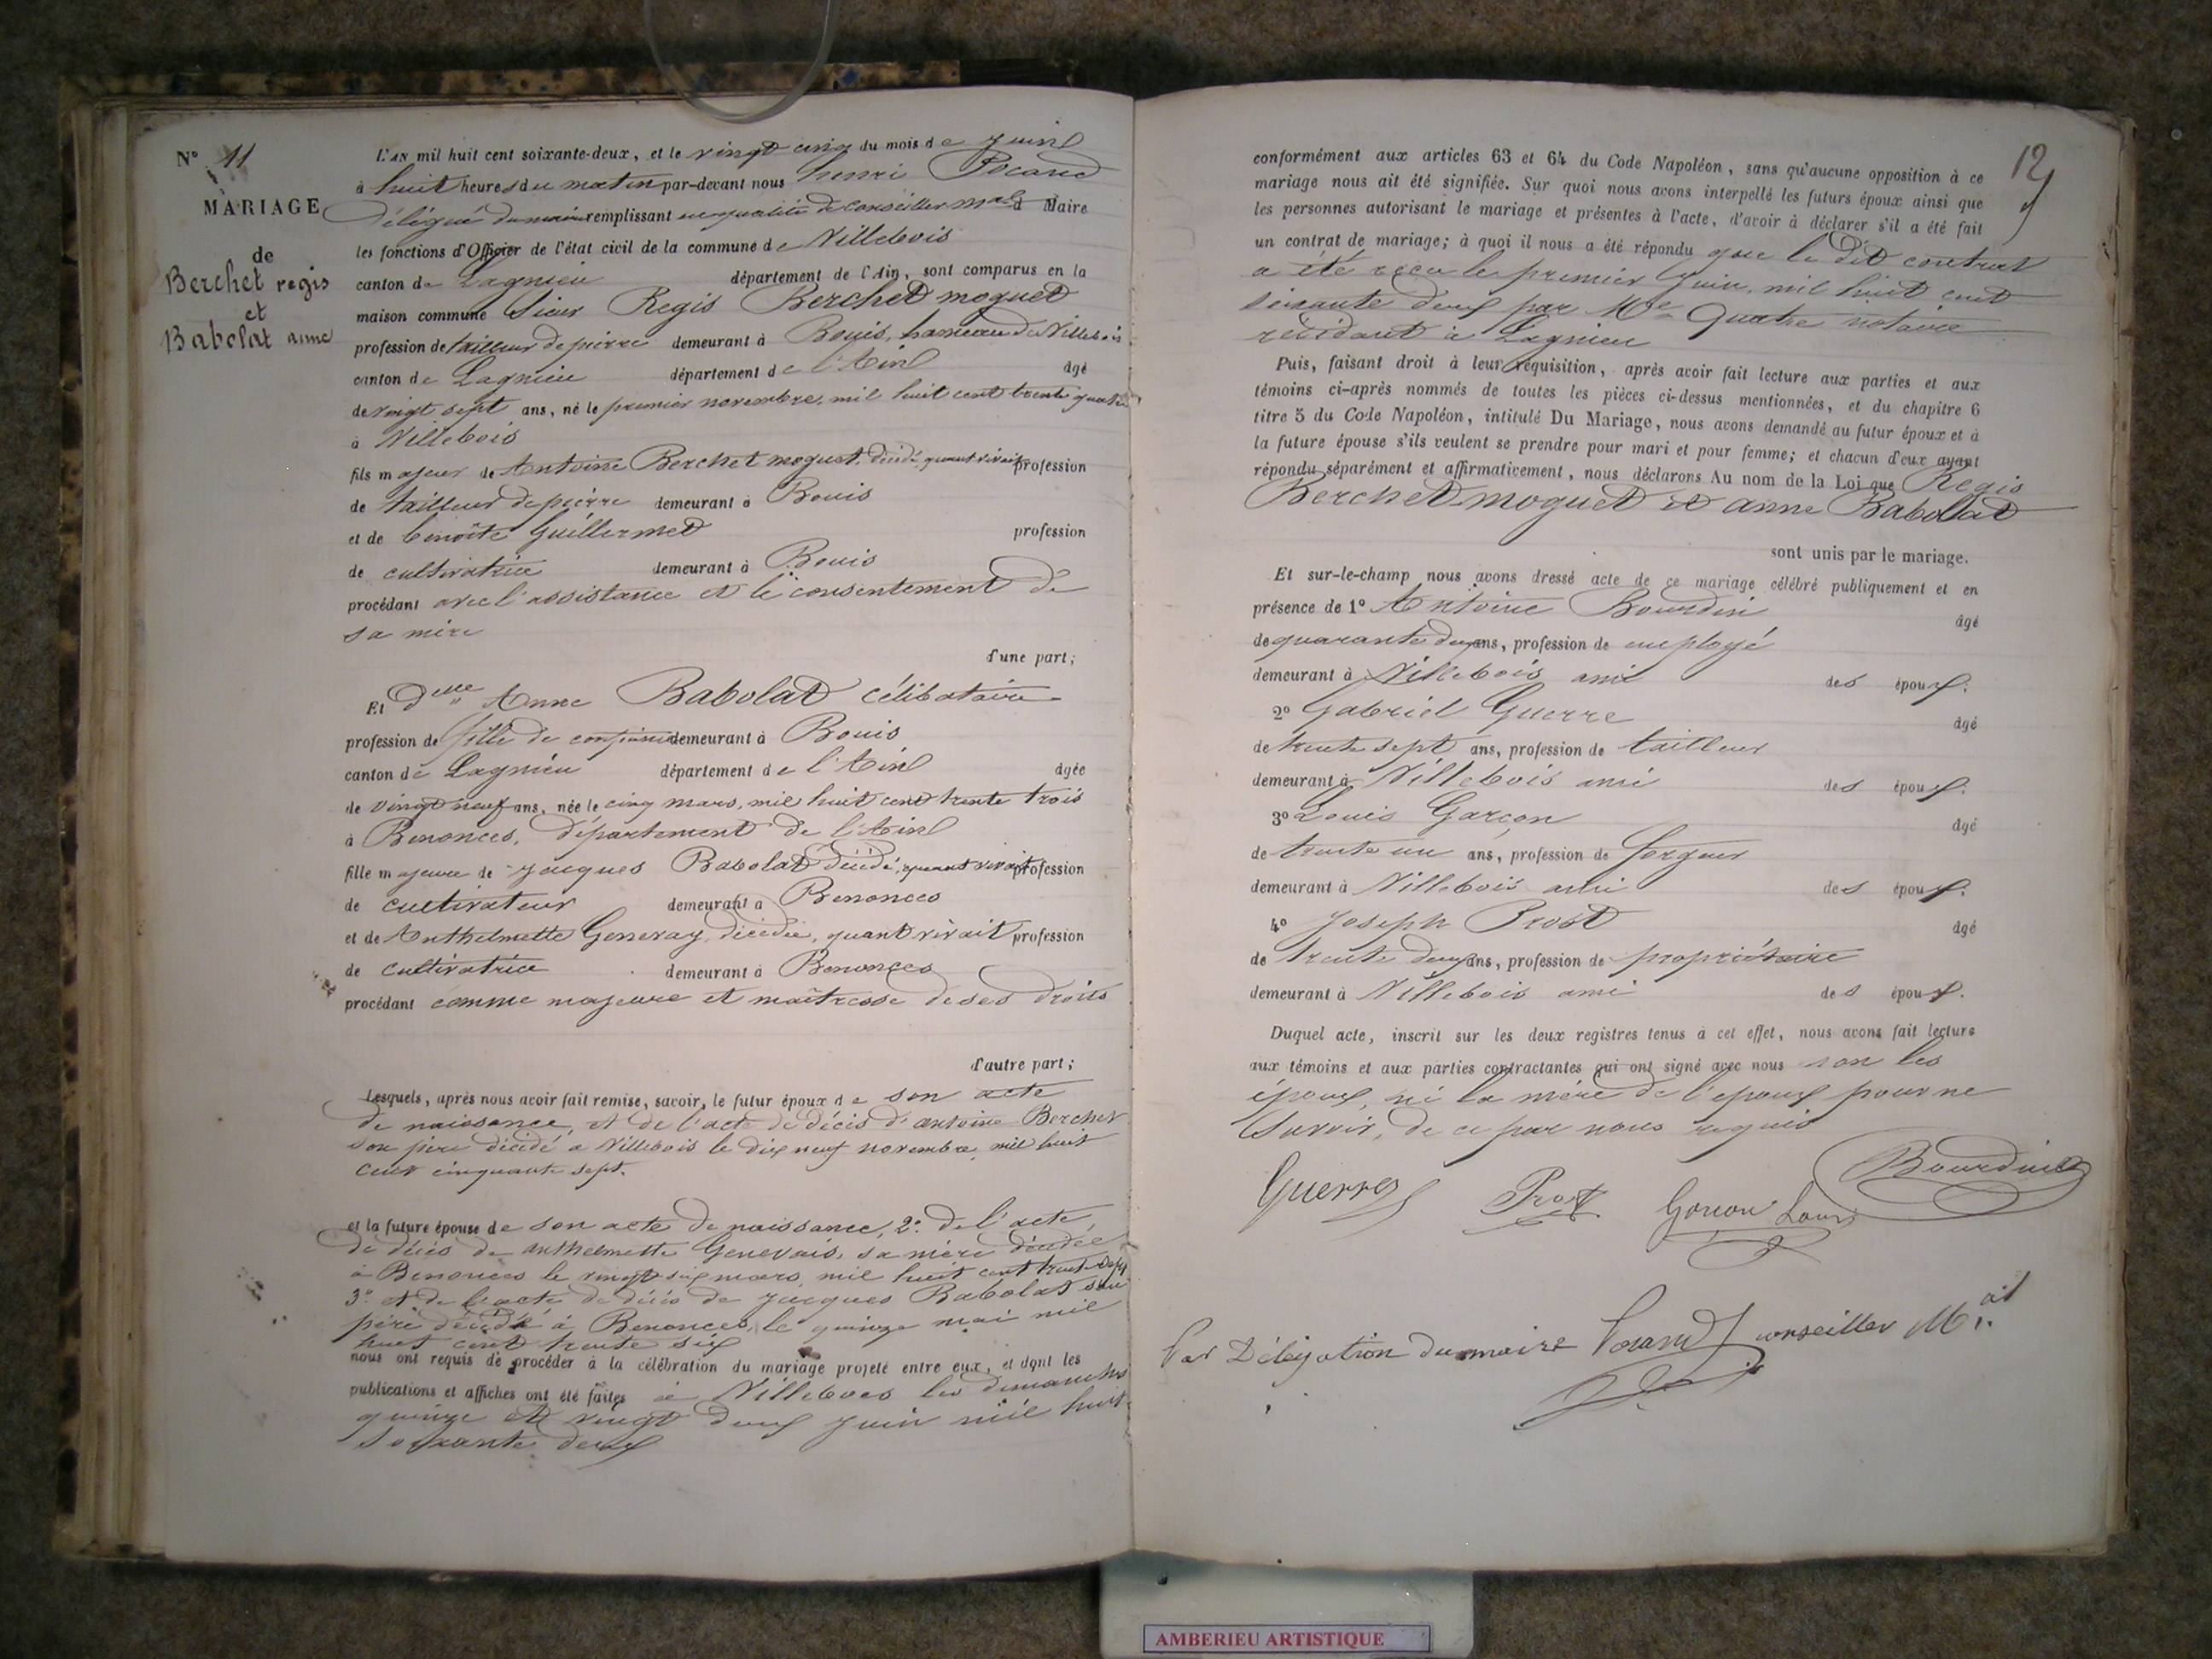 N° 11
MARIAGE
de
Berchet regis
et
Babolat anne
L'an mil huit cent soixante-deux, et le vingt cinq du mois de Juin
à huit heures du matin par-devant nous henri Pocard
Délégué du maire remplissant en qualité de conseiller mal d Maire
les fonctions d'Officier de l'état civil de la commune de Villebois
canton de Lagnieu département de l'Ain, sont comparus en la
maison commune Sieur Regis Berchet moguet
profession de tailleur de pierre demeurant à Bouis, hameau de Villebois
canton de Lagnieu département de l'Ain âgé
de vingt sept ans, né le premier novembre, mil huit cent trente quatre
à Villebois
fils majeur de Antoine Berchet moguet, décédé, quant vivait profession
de tailleur de pierre demeurant à Bouis
et de benoîte Guillermet profession
de cultivatrice demeurant à Bouis
procédant avec l'assistance et le consentement de
sa mère
d'une part;
Et Delle Anne Babolat célibataire
profession de fille de confiance demeurant à Bouis
canton de Lagnieu département de l'Ain âgée
de vingt neuf ans, née le cinq mars, mil huit cent trente trois
à Benonces, département de l'Ain
fille majeure de Jacques Babolat décédé, quant vivait profession
de cultivateur demeurant à Benonces
et de Anthelmette Generay, décédée, quant vivait profession
de cultivatrice demeurant à Benonces
procédant comme majeure et maîtresse de ses droits
d'autre part;
Lesquels, après nous avoir fait remise, savoir, le futur époux de son acte
de naissance, et de l'acte de décès d'antoine Berchet
son père décédé a Villebois le dix neuf novembre, mil huit
cent cinquante sept.
et la future épouse de son acte de naissance, 2° de l'acte
de décès de anthelmette Genevais, sa mère décédée
à Benonces le vingt six mars, mil huit cent trente
3° et de l'acte de décès de Jacques Babolat son
père décédé à Benonces, le quinze mai mil
huit cent trente six
nous ont requis de procéder à la célébration du mariage projeté entre eux, et dont les
publications et affiches ont été faites à Villebois les dimanches
quinze et vingt deux juin mil huit
soixante deux
12
conformément aux articles 63 et 64 du Code Napoléon, sans qu'aucune opposition à ce
mariage nous ait été signifiée. Sur quoi nous avons interpellé les futurs époux ainsi que
les personnes autorisant le mariage et présentes à l'acte, d'avoir à déclarer s'il a été fait
un contrat de mariage; à quoi il nous a été répondu que le dit contrat
a été reçu le premier Juin, mil huit cent
soixante deux par Me Quatre notaire
résidant à Lagnieu
Puis, faisant droit à leur réquisition, après avoir fait lecture aux parties et aux
témoins ci-après nommés de toutes les pièces ci-dessus mentionnées, et du chapitre 6
titre 5 du Code Napoléon, intitulé Du Mariage, nous avons demandé au futur époux et à
la future épouse s'ils veulent se prendre pour mari et pour femme; et chacun d'eux ayant
répondu séparément et affirmativement, nous déclarons Au nom de la Loi que Regis
Berchet-moguet et anne Babolat
sont unis par le mariage.
Et sur-le-champ nous avons dressé acte de ce mariage célébré publiquement et en
présence de 1° Antoine Bourdin âgé
de quarante deux ans, profession de employé
demeurant à Villebois ami des époux.
2° Gabriel Guerre âgé
de trente sept ans, profession de tailleur
demeurant à Villebois ami des époux.
3° Louis Garçon âgé
de trente un ans, profession de forgeur
demeurant à Villebois ami des époux.
4° Joseph Prost âgé
de trente deux ans, profession de propriétaire
demeurant à Villebois ami des époux.
Duquel acte, inscrit sur les deux registres tenus à cet effet, nous avons fait lecture
aux témoins et aux parties contractantes qui ont signé avec nous non les
époux, ni la mère de l'époux pour ne
savoir, de ce par nous requis
Bourdin
Guerre Prost Goucon Louis
Par Délégation du maire Pocard conseiller Mal
AMBERIEU ARTISTIQUE